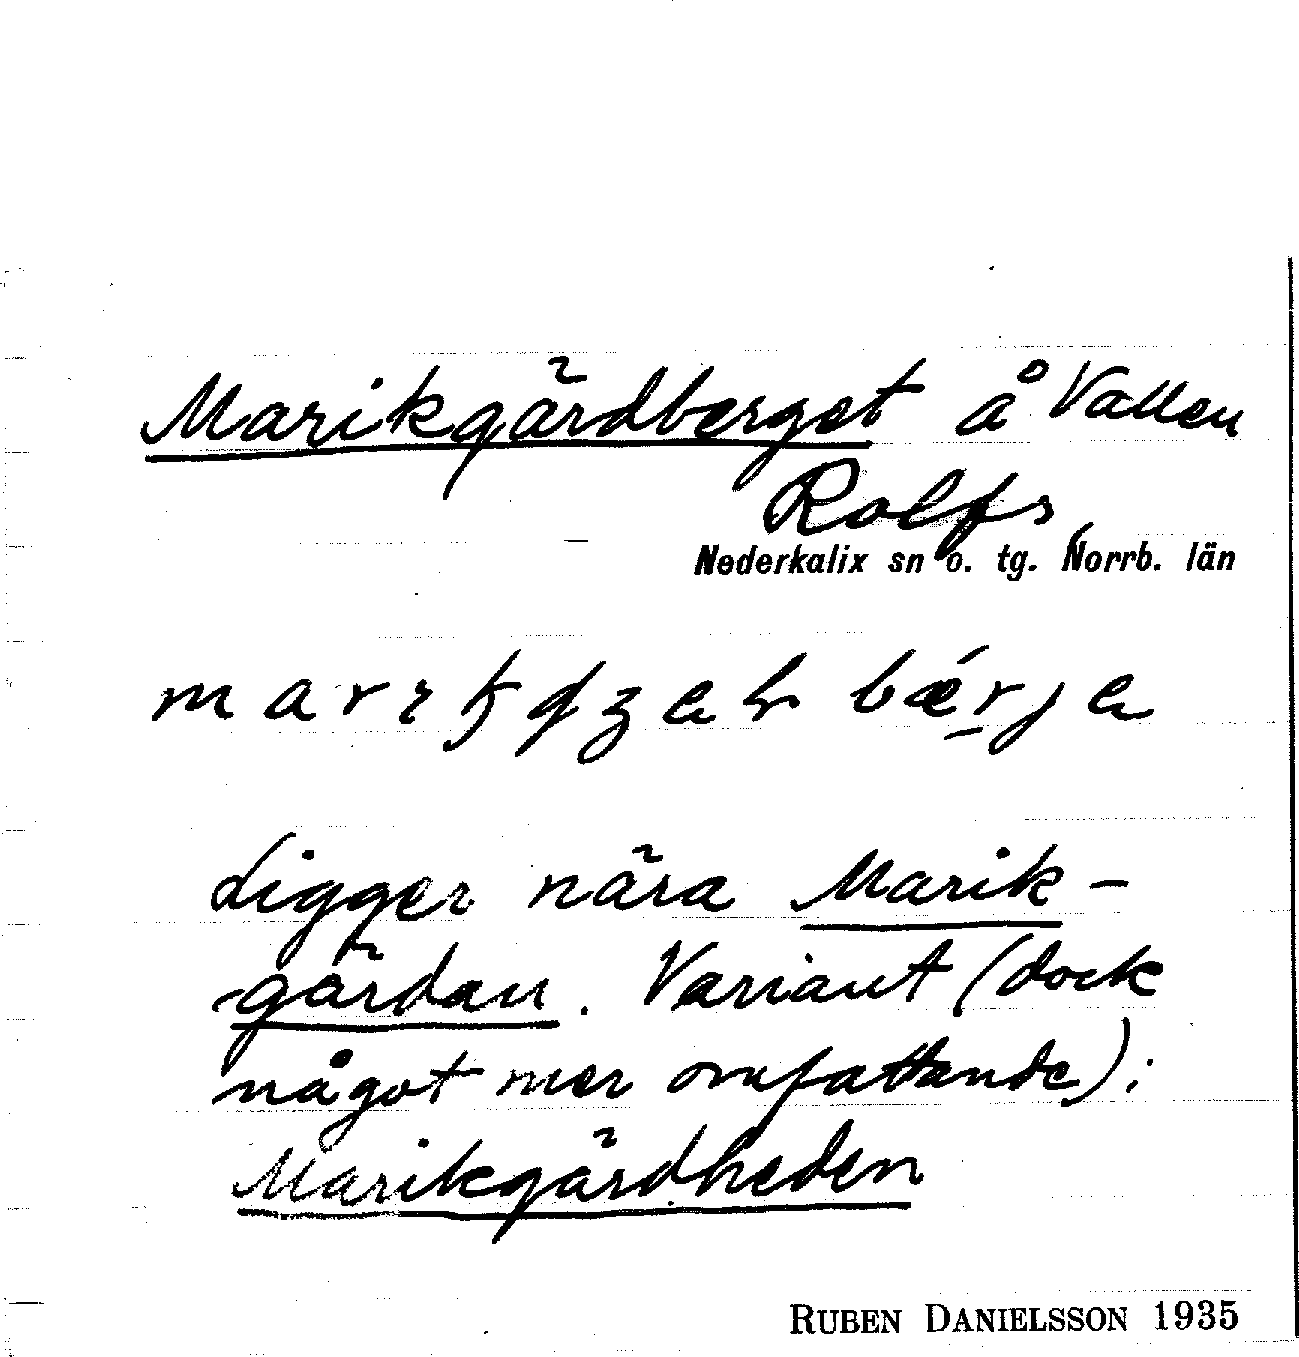 Marikgärdberget å Vallen
Rolfs,
Nederkalix sn o. tg. Norrb. län
Ligger nära Marik-
gärdan. Variant (dock
något mer omfattande):
Marikgärdheden
RUBEN DANIELSSON 1935